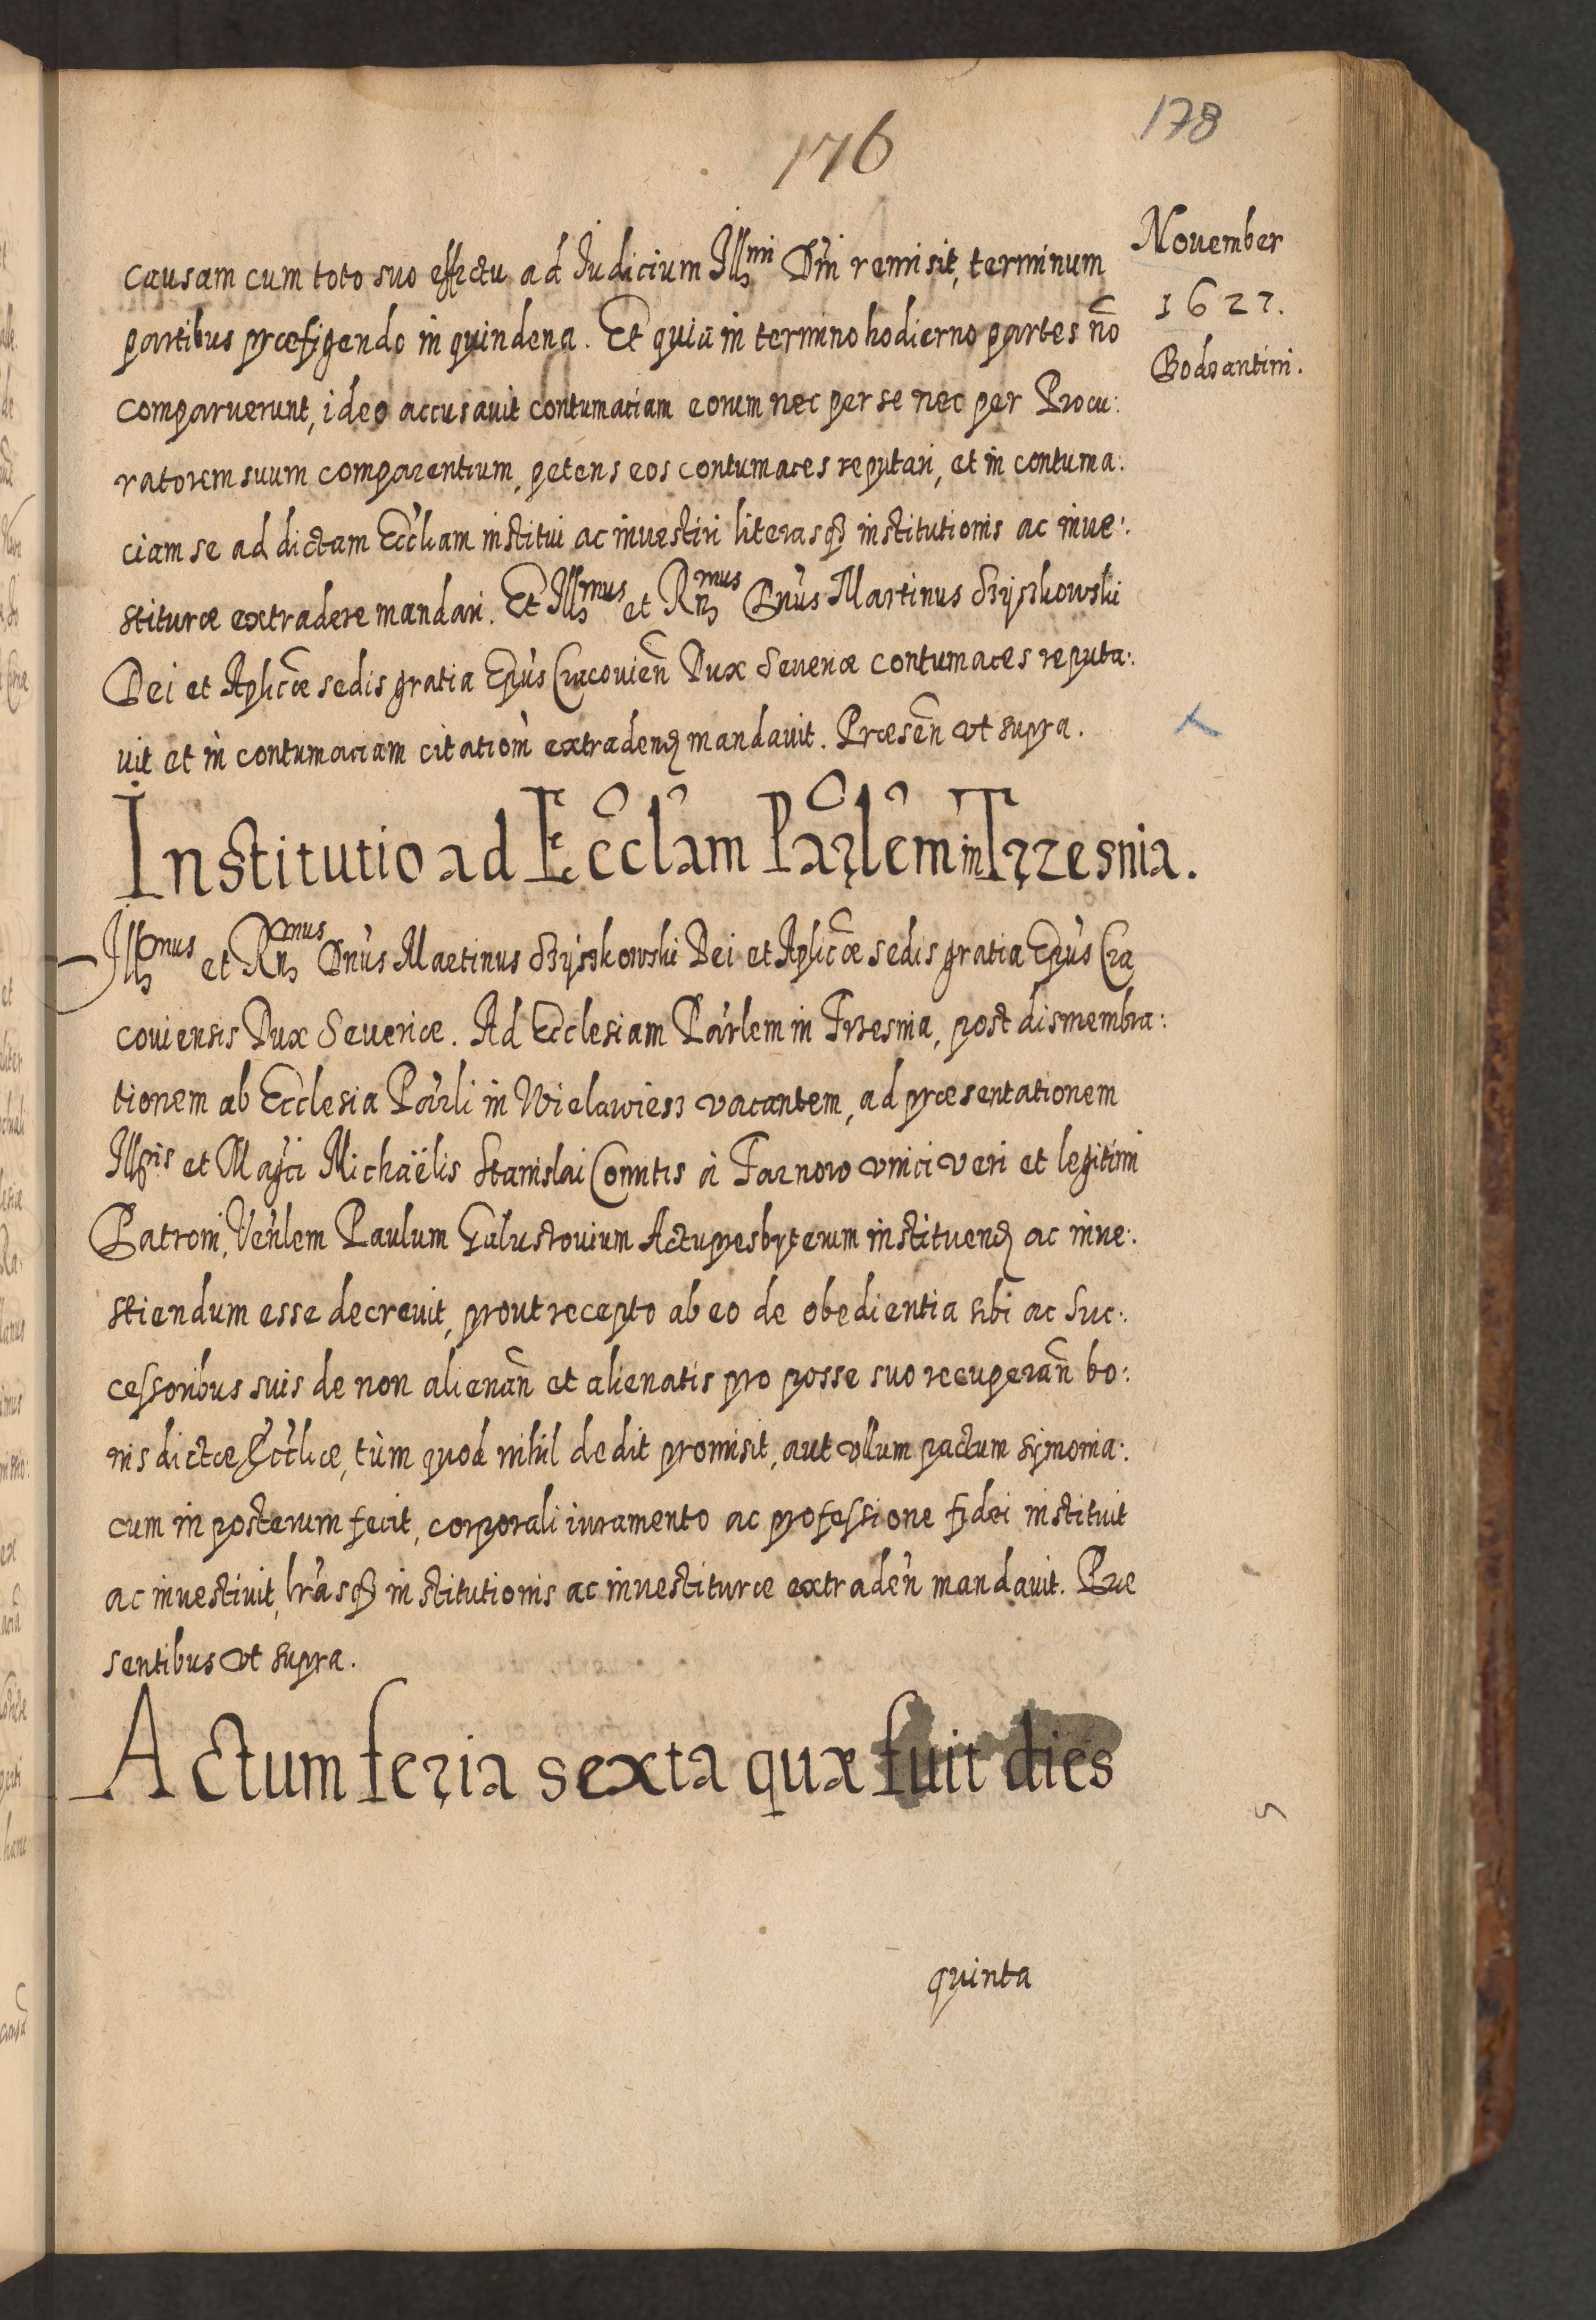 176
178
November
1622.
Bodzantini.
causam cum toto suo effectu ad Iudicium Illmi Dñi remisit, terminum
partibus præfigendo in quindena. Et quia in termino hodierno partes nõ
comparuerunt, ideo accusauit contumaciam eorum nec per se nec per Procu:
ratorem suum comparentium, petens eos contumaces reputari, et in contuma:
ciam se ad dictam Eccliam institui ac inuestiri literasq3 institutionis ac inue:
stituræ extradere mandari. Et Illmus et Rndmus Dnus Martinus Szyszkowski
Dei et Aplicæ sedis gratia Epus Cracouieñ Dux Seueriæ contumaces reputa:
uit et in contumaciam citatiom extradend mandauit. Præseñ vt supra.
Institutio ad Ecclam Parlem in Trzesnia.
Illmus et Rndmus Dnus Martinus Szyszkowski Dei et Aplicæ sedis gratia Epus Cra
couiensis Dux Seueriæ. Ad Ecclesiam Parlem in Trzesnia, post dismembra:
tionem ab Ecclesia Parli in Wielawiesz vacantem, ad præsentationem
Illris et Magci Michaëlis Stanislai Comitis à Tarnow vnici veri et legitimi
Patroni, Venlem Paulum Galustouium Actupresbyterum instituend ac inue:
stiendum esse decreuit, prout recepto ab eo de obedientia sibi ac Suc:
cessoribus suis de non alienañ et alienatis pro posse suo recuperañ bo:
nis dictæ Eccliæ, tùm quod nihil dedit promisit, aut vllum pactum symonia:
cum in posterum fecit, corporali iuramento ac professione fidei instituit
ac inuestiuit, lrasq3 institutionis ac inuestituræ extradeñ mandauit. Præ
sentibus vt supra.
Actum feria sexta quæ fuit dies
quinta